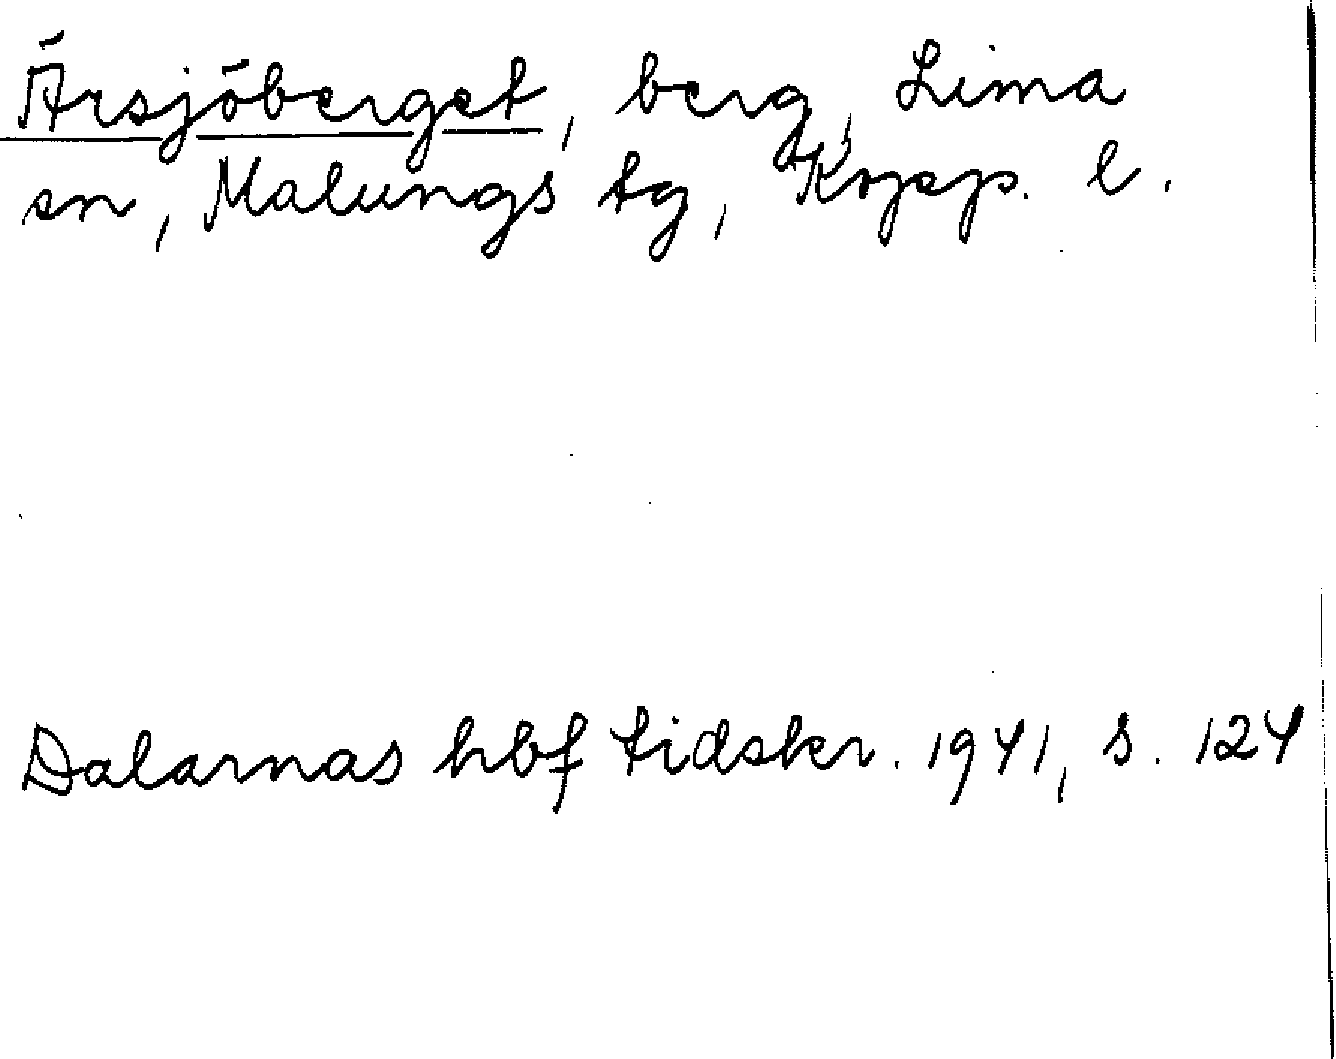 Ärsjöberget, berg, Lima
sn, Malungs tg, Kopp. l.
Dalarnas hbf tidskr. 1941, s. 124